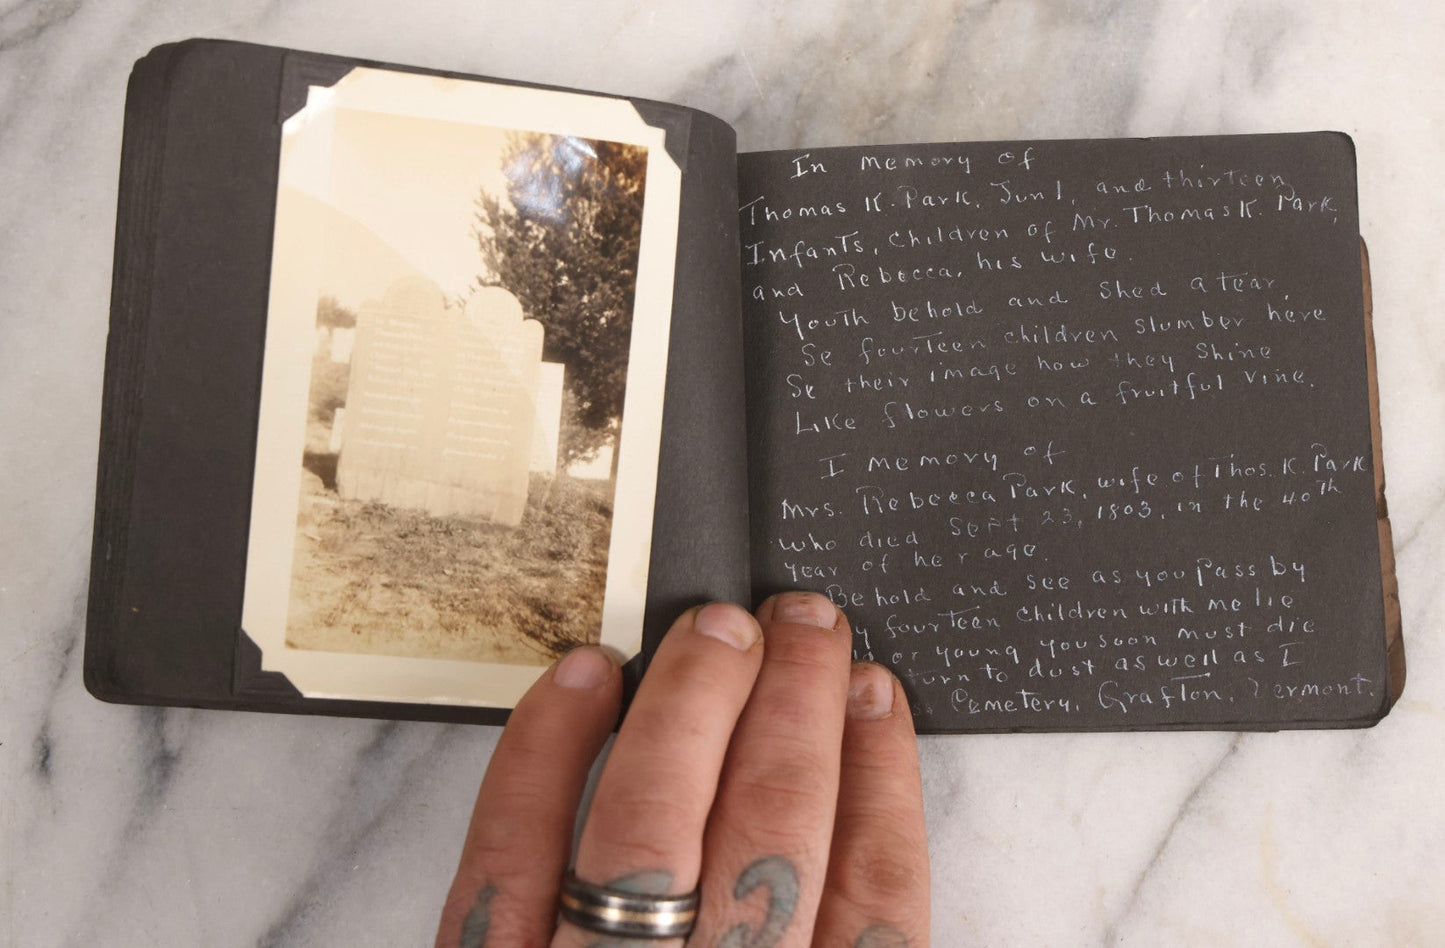 In memory of
Thomas K. Park, Jun1, and thirteen
Infants, children of Mr. Thomas K. Park,
and Rebecca, his wife.
Youth behold and shed a tear,
Se fourteen children slumber here
Se their image how they shine
Like flowers on a fruitful vine.
I memory of
Mrs. Rebecca Park, wife of Thos. K. Park
who died Sept 23, 1803, in the 40th
year of her age.
Behold and see as you pass by
fourteen children with me lie
or young you soon must die
turn to dust as well as I
Cemetery, Grafton, Vermont.